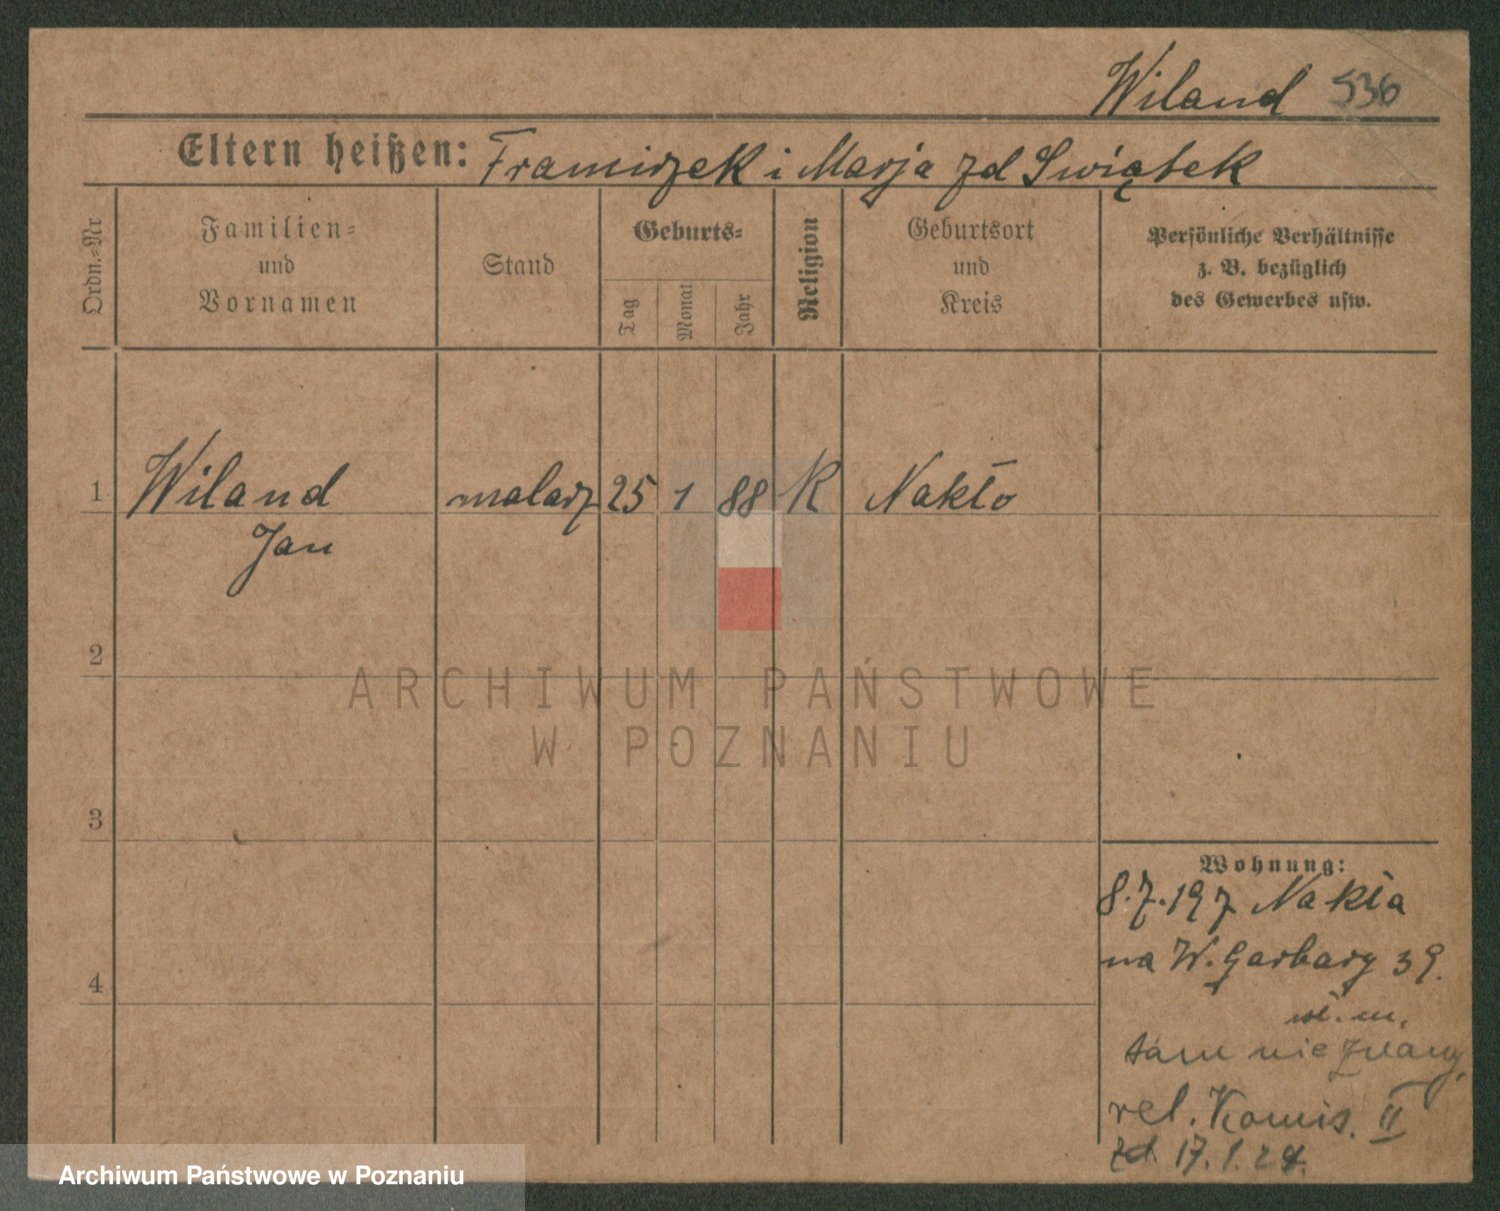 Wiland 536
Eltern heißen: Franciszek i Marja zd Swiątek
Ordn.-Nr
Familien-
und
Vornamen
Stand
Geburts-
Tag
Monat
Jahr
Religion
Geburtsort
und
Kreis
Persönliche Verhältnisse
z. B. bezüglich
des Gewerbes usw.
1 Wiland malarz 25 1 88 R Nakło
Jan
2
ARCHIWUM PAŃSTWOWE
W POZNANIU
3
Wohnung:
8.7.197 Nakła
na W. Garbary 39.
4
wł. m.
tam nieznany,
rel. Komis. II
zd. 17.1.24.
Archiwum Państwowe w Poznaniu